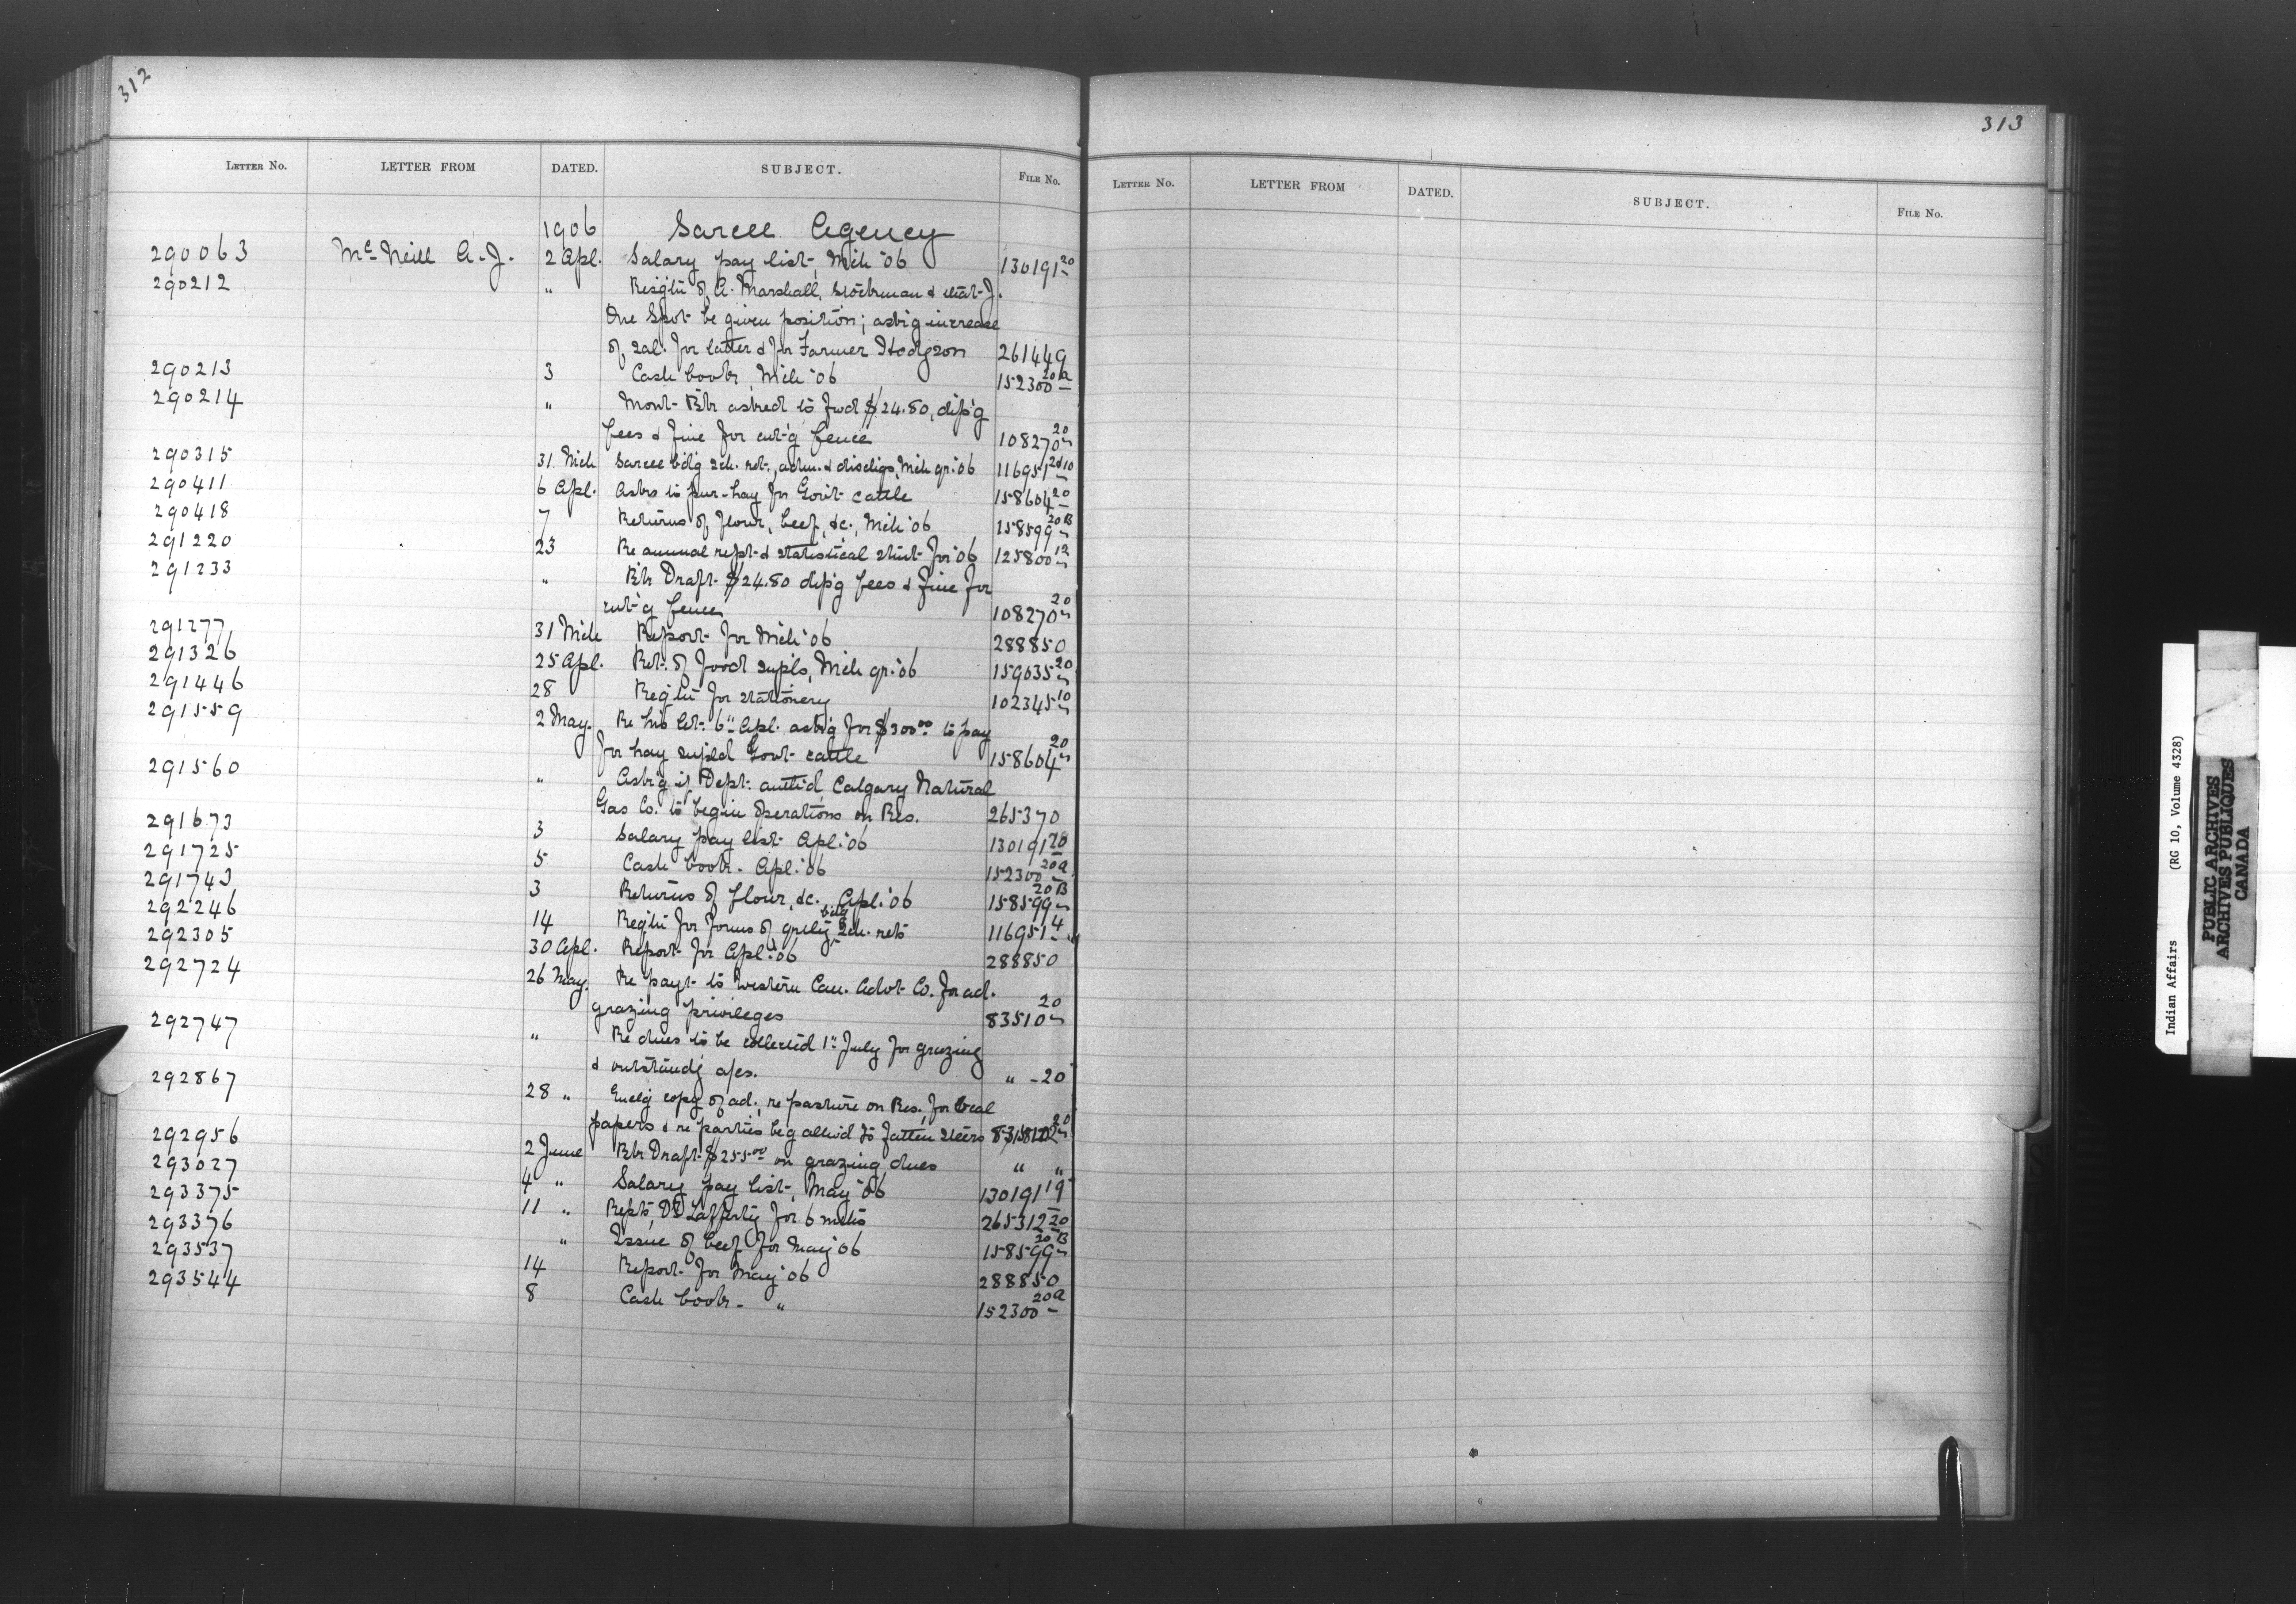 312
LETTER NO. LETTER FROM DATED. SUBJECT. FILE NO.
1906 Sarcee Agency
290063 McNeill A. J. 2 Apl. Salary pay list, Mch '06 130191 20
290212 " Resig'tn of A. Marshall, Stockman & that J.
One Spot be given position; ask'g increase
of sal. for latter & for Farmer Hodgson 261449
290213 3 Cash book, Mch '06 152300 20a
290214 " Mont- Bk asked to fwd $24.80, dip'g
fees & fine for cut'g fence 108270 20
290315 31 Mch Sarcee bdg sch. ret., adm. & dischgs, Mch qr. '06 116951
290411 6 Apl. Asks to pur- hay for Govt- cattle 158604 20
290418 7 Returns of flour, beef, &c., Mch '06 158599 20B
291220 23 Re annual rept- & statistical stmt- for '06 125800 12
291233 " Bk Draft- $24.80 dip'g fees & fine for
cut'g fence 108270 20
291277 31 Mch Report- for Mch '06 288850
291326 25 Apl. Ret. of food supls, Mch qr. '06 159035 20
291446 28 Reqtn for stationery 102345 10
291559 2 May. Re his let. 6" Apl. ask'g for $300 00 to pay
for hay supld Govt- cattle 158604 20
291560 " Ask'g if Dept. auth'd Calgary Natural
Gas Co. to begin operations on Res. 265370
291673 3 Salary pay list- Apl. '06 130191 20
291725 5 Cash book- Apl. '06 152300 20a
291743 3 Returns of flour, &c. Apl. '06 158599 20B
292246 14 Reqtn for forms of qrtly bdg sch. rets 116951 4
292305 30 Apl. Report- for Apl. '06 288850
292724 26 May. Re payt- to Western Can. Advt- Co. for ad.
grazing privileges 83510 20
292747 " Re dues to be collected 1" July for grazing
& outstand'g a/cs. " -20
292867 28 " Enclg copy of ad., re pasture on Res., for local
papers & re parties beg allow'd to fatten steers
292956 2 June Bk Draft- $255 00 on grazing dues " "
293027 4 " Salary pay list, May '06 130191 19
293375 11 " Repts, Dr Lafferty for 6 mths 265312 20
293376 " Issue of beef for May '06 158599 20B
293537 14 Report- for May '06 288850
293544 8 Cash book- " 152300 20a
313
LETTER NO. LETTER FROM DATED. SUBJECT. FILE NO.
Indian Affairs (RG 10, Volume 4328)
PUBLIC ARCHIVES
ARCHIVES PUBLIQUES
CANADA